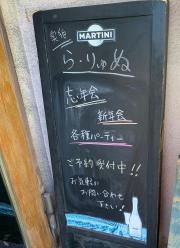 MARTINI
ら・りゅぬ
忘年会
新年会
各種パーティー
ご予約受付中!!
お気軽に
お問い合わせ
下さい!